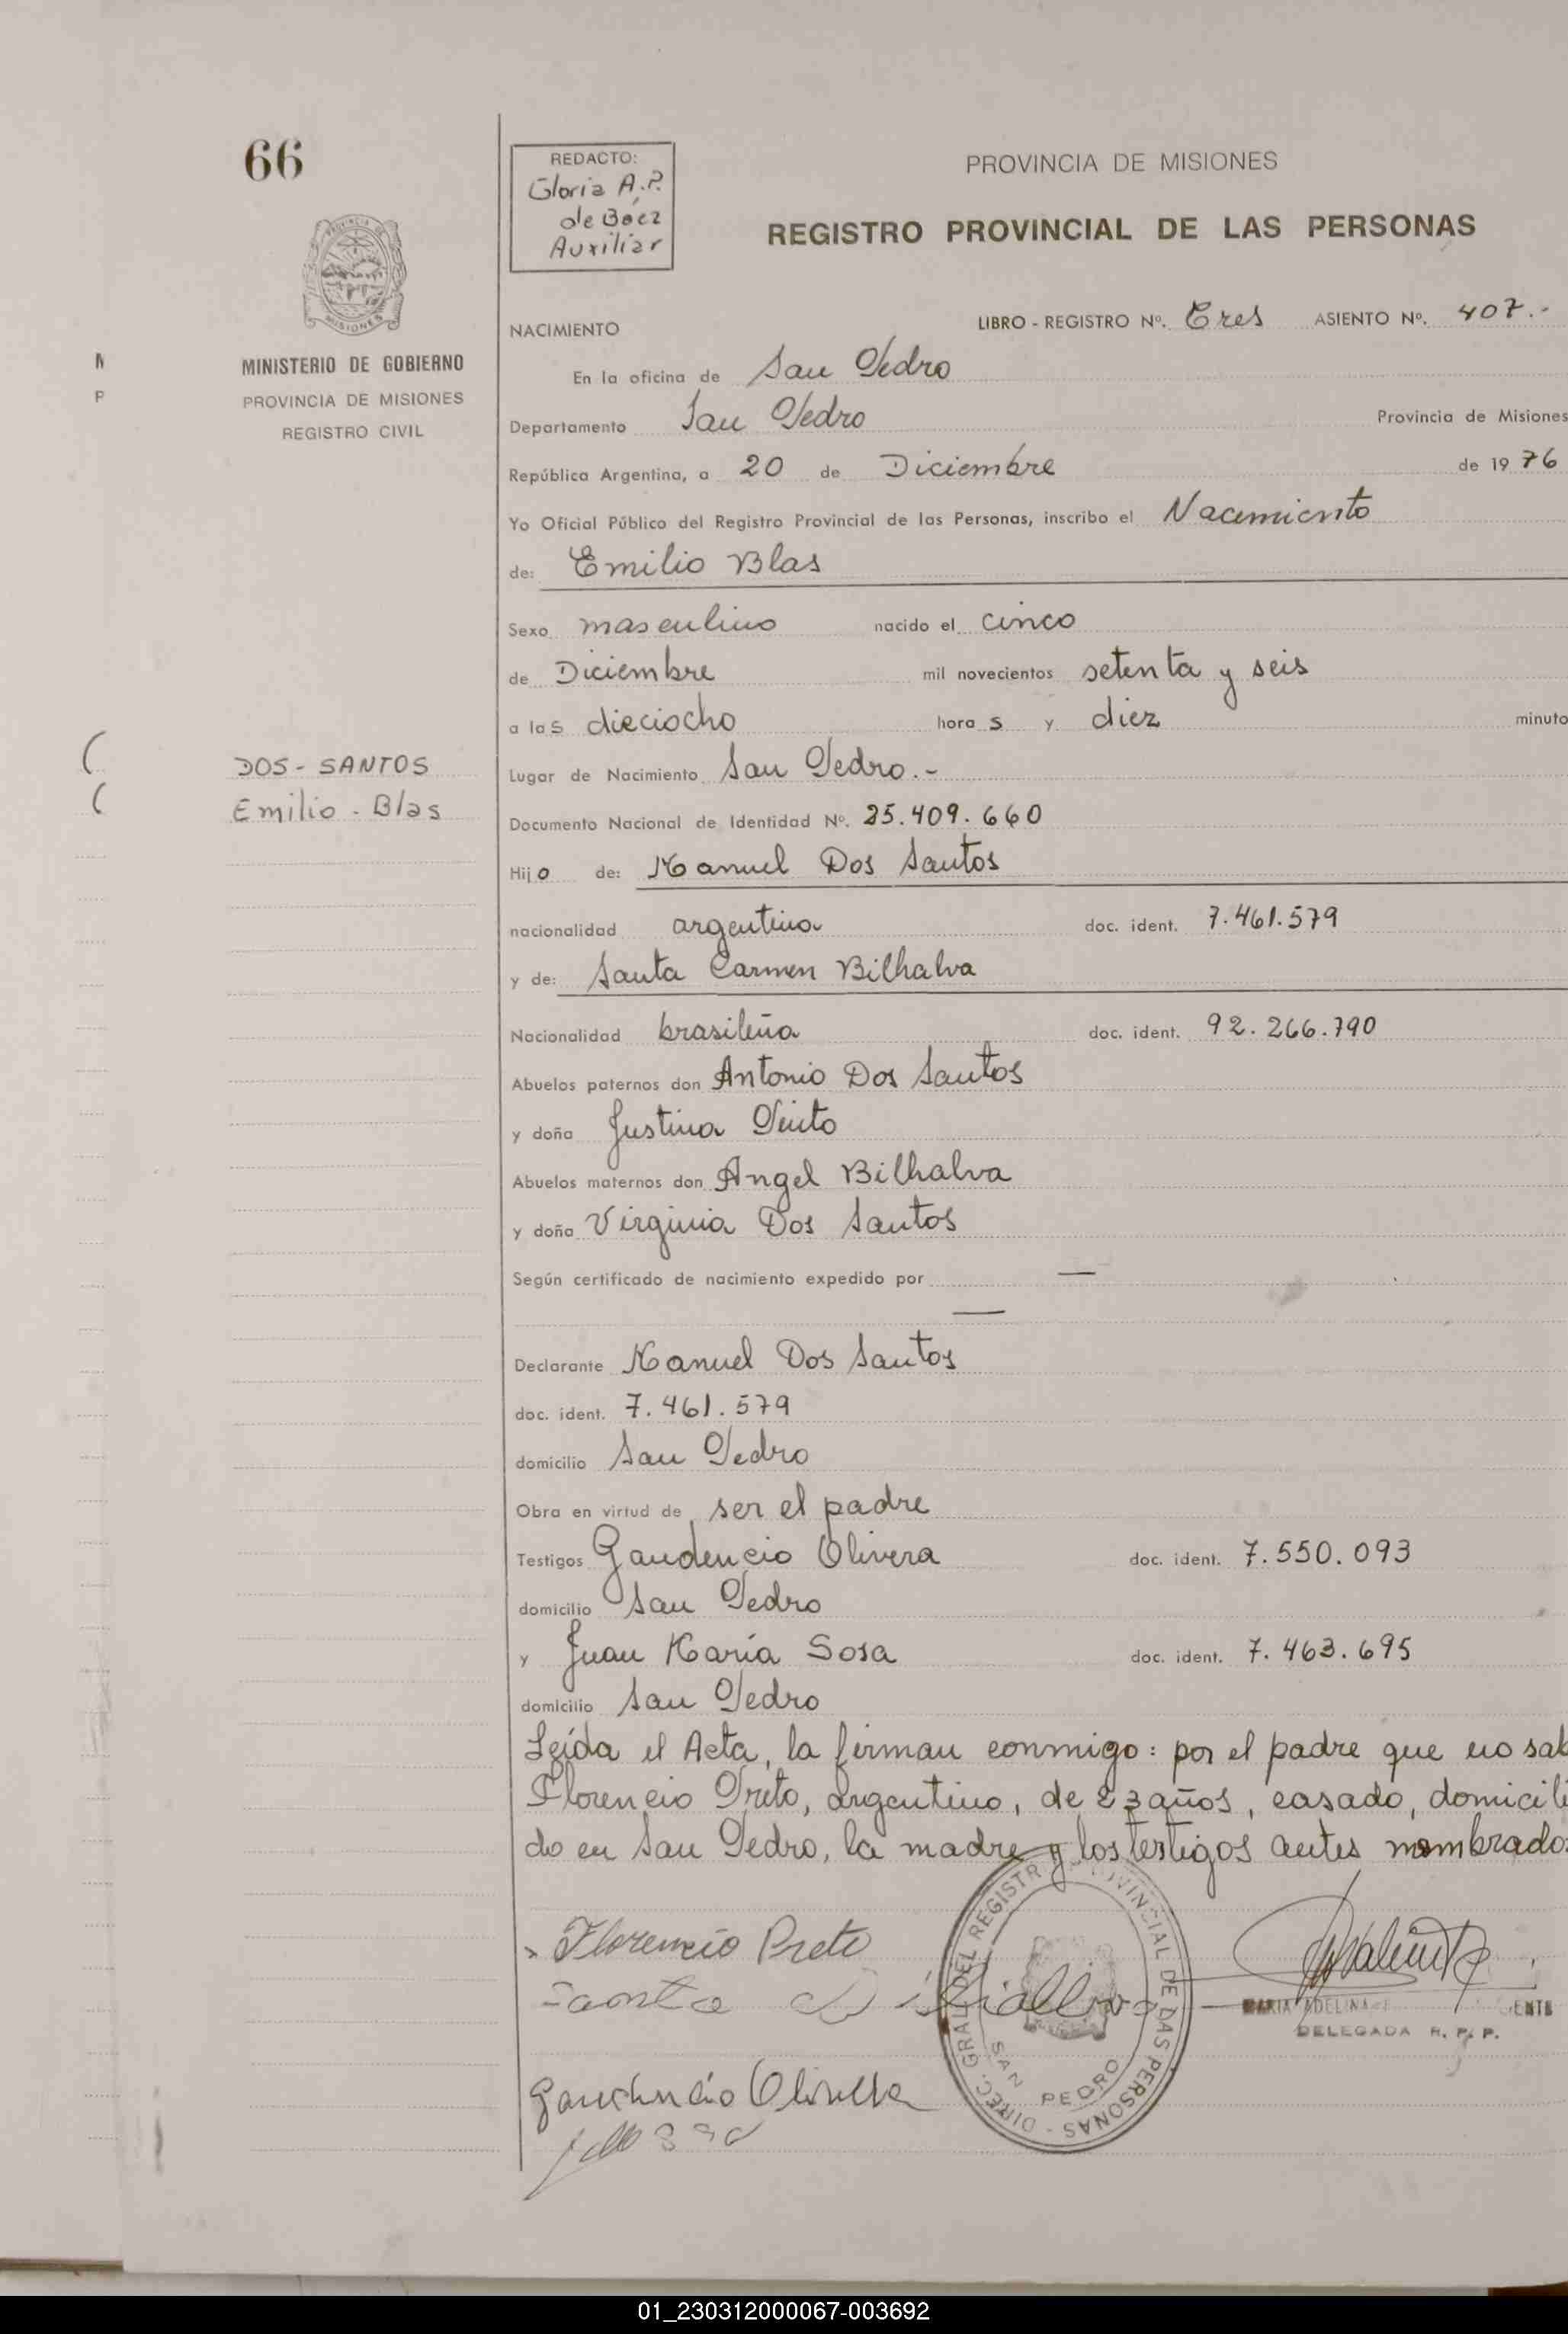 66
REDACTO:
Gloria A.P.
de Báez
Auxiliar
PROVINCIA DE MISIONES
REGISTRO PROVINCIAL DE LAS PERSONAS
MINISTERIO DE GOBIERNO
PROVINCIA DE MISIONES
REGISTRO CIVIL
M
P
NACIMIENTO LIBRO - REGISTRO Nº. Tres ASIENTO Nº. 407.-
En la oficina de San Pedro
Departamento San Pedro Provincia de Misiones
República Argentina, a 20 de Diciembre de 1976
Yo Oficial Público del Registro Provincial de las Personas, inscribo el Nacimiento
de: Emilio Blas
Sexo masculino nacido el cinco
de Diciembre mil novecientos setenta y seis
a las dieciocho horas y diez minuto
DOS-SANTOS
Emilio - Blas
Lugar de Nacimiento San Pedro.-
Documento Nacional de Identidad Nº. 25.409.660
Hijo de: Manuel Dos Santos
nacionalidad argentina doc. ident. 7.461.579
y de: Santa Carmen Bilhalva
Nacionalidad brasileña doc. ident. 92.266.790
Abuelos paternos don Antonio Dos Santos
y doña Justina
Abuelos maternos don Angel Bilhalva
y doña Virginia Dos Santos
Según certificado de nacimiento expedido por —
—
Declarante Manuel Dos Santos
doc. ident. 7.461.579
domicilio San Pedro
Obra en virtud de ser el padre
Testigos Gaudencio Olivera doc. ident. 7.550.093
domicilio San Pedro
y Juan María Sosa doc. ident. 7.463.695
domicilio San Pedro
Leída el Acta, la firman conmigo: por el padre que no sab
Florencio Preto, argentino, de 23 años, casado, domicili
do en San Pedro, la madre y los testigos antes nombrados
Florencio Preto
Santa
Gaudencio Olivera
DIREC. GRAL. DEL REGISTRO PROVINCIAL DE LAS PERSONAS -
SAN PEDRO
MARIA ADELINA
DELEGADA R. P. P.
01_230312000067-003692